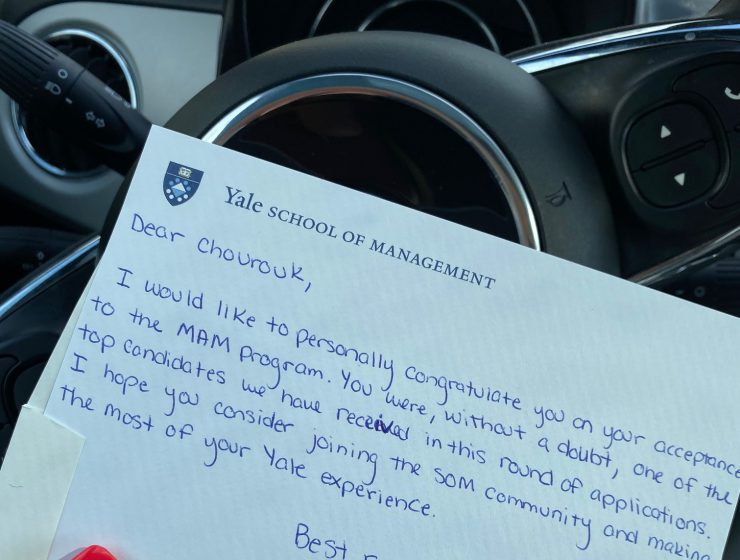 Yale SCHOOL OF MANAGEMENT
Dear Chourouk,
I would like to personally congratulate you on your acceptance
to the MAM Program. You were, without a doubt, one of the
top candidates we have received in this round of applications.
I hope you consider joining the SOM community and making
the most of your Yale experience.
Best